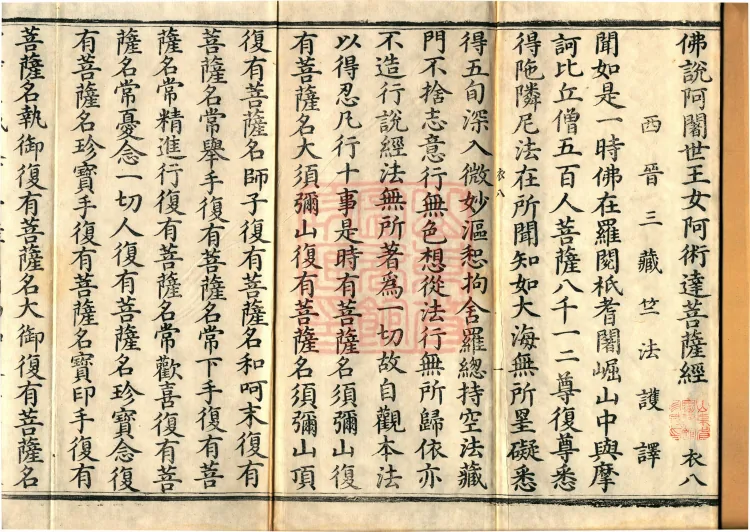 佛說阿闍世王女阿術達菩薩經 衣八
西晉三藏竺法護譯
聞如是一時佛在羅閱祇耆闍崛山中與摩
訶比丘僧五百人菩薩八千一二尊復尊悉
得陁隣尼法在所聞知如大海無所罣礙悉
得五旬深入微妙漚惒拘舍羅緫持空法藏
門不捨志意行無色想從法行無所歸依亦
衣八
不造行說經法無所著為一切故自觀本法
以得忍凡行十事是時有菩薩名須彌山復
有菩薩名大須彌山復有菩薩名須彌山頂
復有菩薩名師子復有菩薩名和呵末復有
菩薩名常舉手復有菩薩名常下手復有菩
薩名常精進行復有菩薩名常歡喜復有菩
薩名常憂念一切人復有菩薩名珍寶念復
有菩薩名珍寶手復有菩薩名寶印手復有
菩薩名執御復有菩薩名大御復有菩薩名